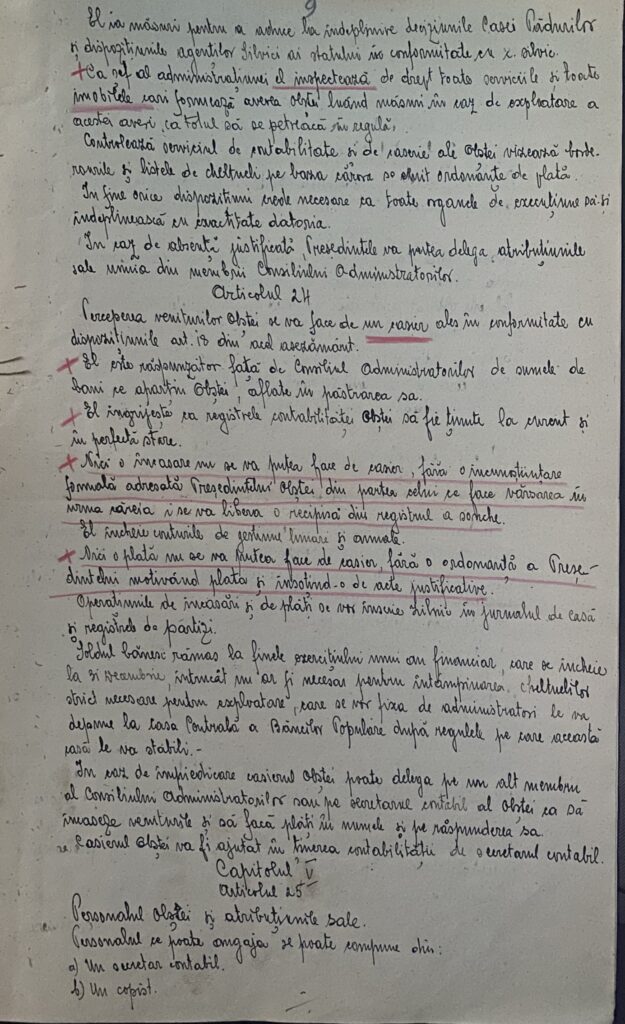 9
El ia măsuri pentru a aduce la îndeplinire deciziunile Casei Pădurilor
și dispozițiunile agenților silvici ai statului în conformitate cu x. silvic.
+ Ca șef al administrațiunei el inspectează de drept toate serviciile și toate
imobilele cari formează averea obștei luând măsuri în caz de exploatare a
acestei averi, ca totul să se petreacă în regulă,
Controlează serviciul de contabilitate și de casierie ale Obștei vizează borde-
rourile și listele de cheltueli pe baza cărora se emit ordonanțe de plată.
In fine orice dispozițiuni crede necesare ca toate organele de execuțiune să-și
îndeplinească cu exactitate datoria.
In caz de absență justificată, Președintele va putea delega atribuțiunile
sale unuia din membrii Consiliului Administratorilor.
Articolul 24
Perceperea veniturilor obștei se va face de un casier ales în conformitate cu
dispozițiunile art. 18 din acel așezământ.
+ El este răspunzător față de Consiliul Administratorilor de sumele de
bani ce aparțin Obștei, aflate în păstrarea sa.
+ El îngrijește ca registrele contabilităței Obștei să fie ținute la curent și
în perfectă stare.
+ Nici o încasare nu se va putea face de casier, fără o încunoștiințare
formală adresată Președintelui Obștei din partea celui ce face vărsarea în
urma căreia i se va libera o recipisă din registrul a souche.
El încheie conturile de gestiune lunare și anuale.
+ Nici o plată nu se va putea face de casier, fără o ordonanță a Preșe-
dintelui motivând plata și însoțind-o de acte justificative.
Operațiunile de încasări și de plăți se vor înscrie zilnic în jurnalul de casă
și registrele de partizi.
Soldul bănesc rămas la finele exercițiului unui an financiar, care se încheie
la 31 Decembrie, întrucât nu ar fi necesar pentru întâmpinarea cheltuelilor
strict necesare pentru exploatare, care se vor fixa de administratori le va
depune la Casa Centrală a Băncilor Populare după regulele pe care această
casă le va stabili.-
In caz de împiedicare casierul Obștei poate delega pe un alt membru
al Consiliului Administratorilor sau pe secretarul contabil al Obștei ca să
încaseze veniturile și să facă plăți în numele și pe răspunderea sa.
Casierul Obștei va fi ajutat în ținerea contabilității de secretarul contabil.
Capitolul V
Articolul 25
Personalul Obștei și atribuțiunile sale.
Personalul ce poate angaja se poate compune din:
a) Un secretar contabil.
b) Un copist.